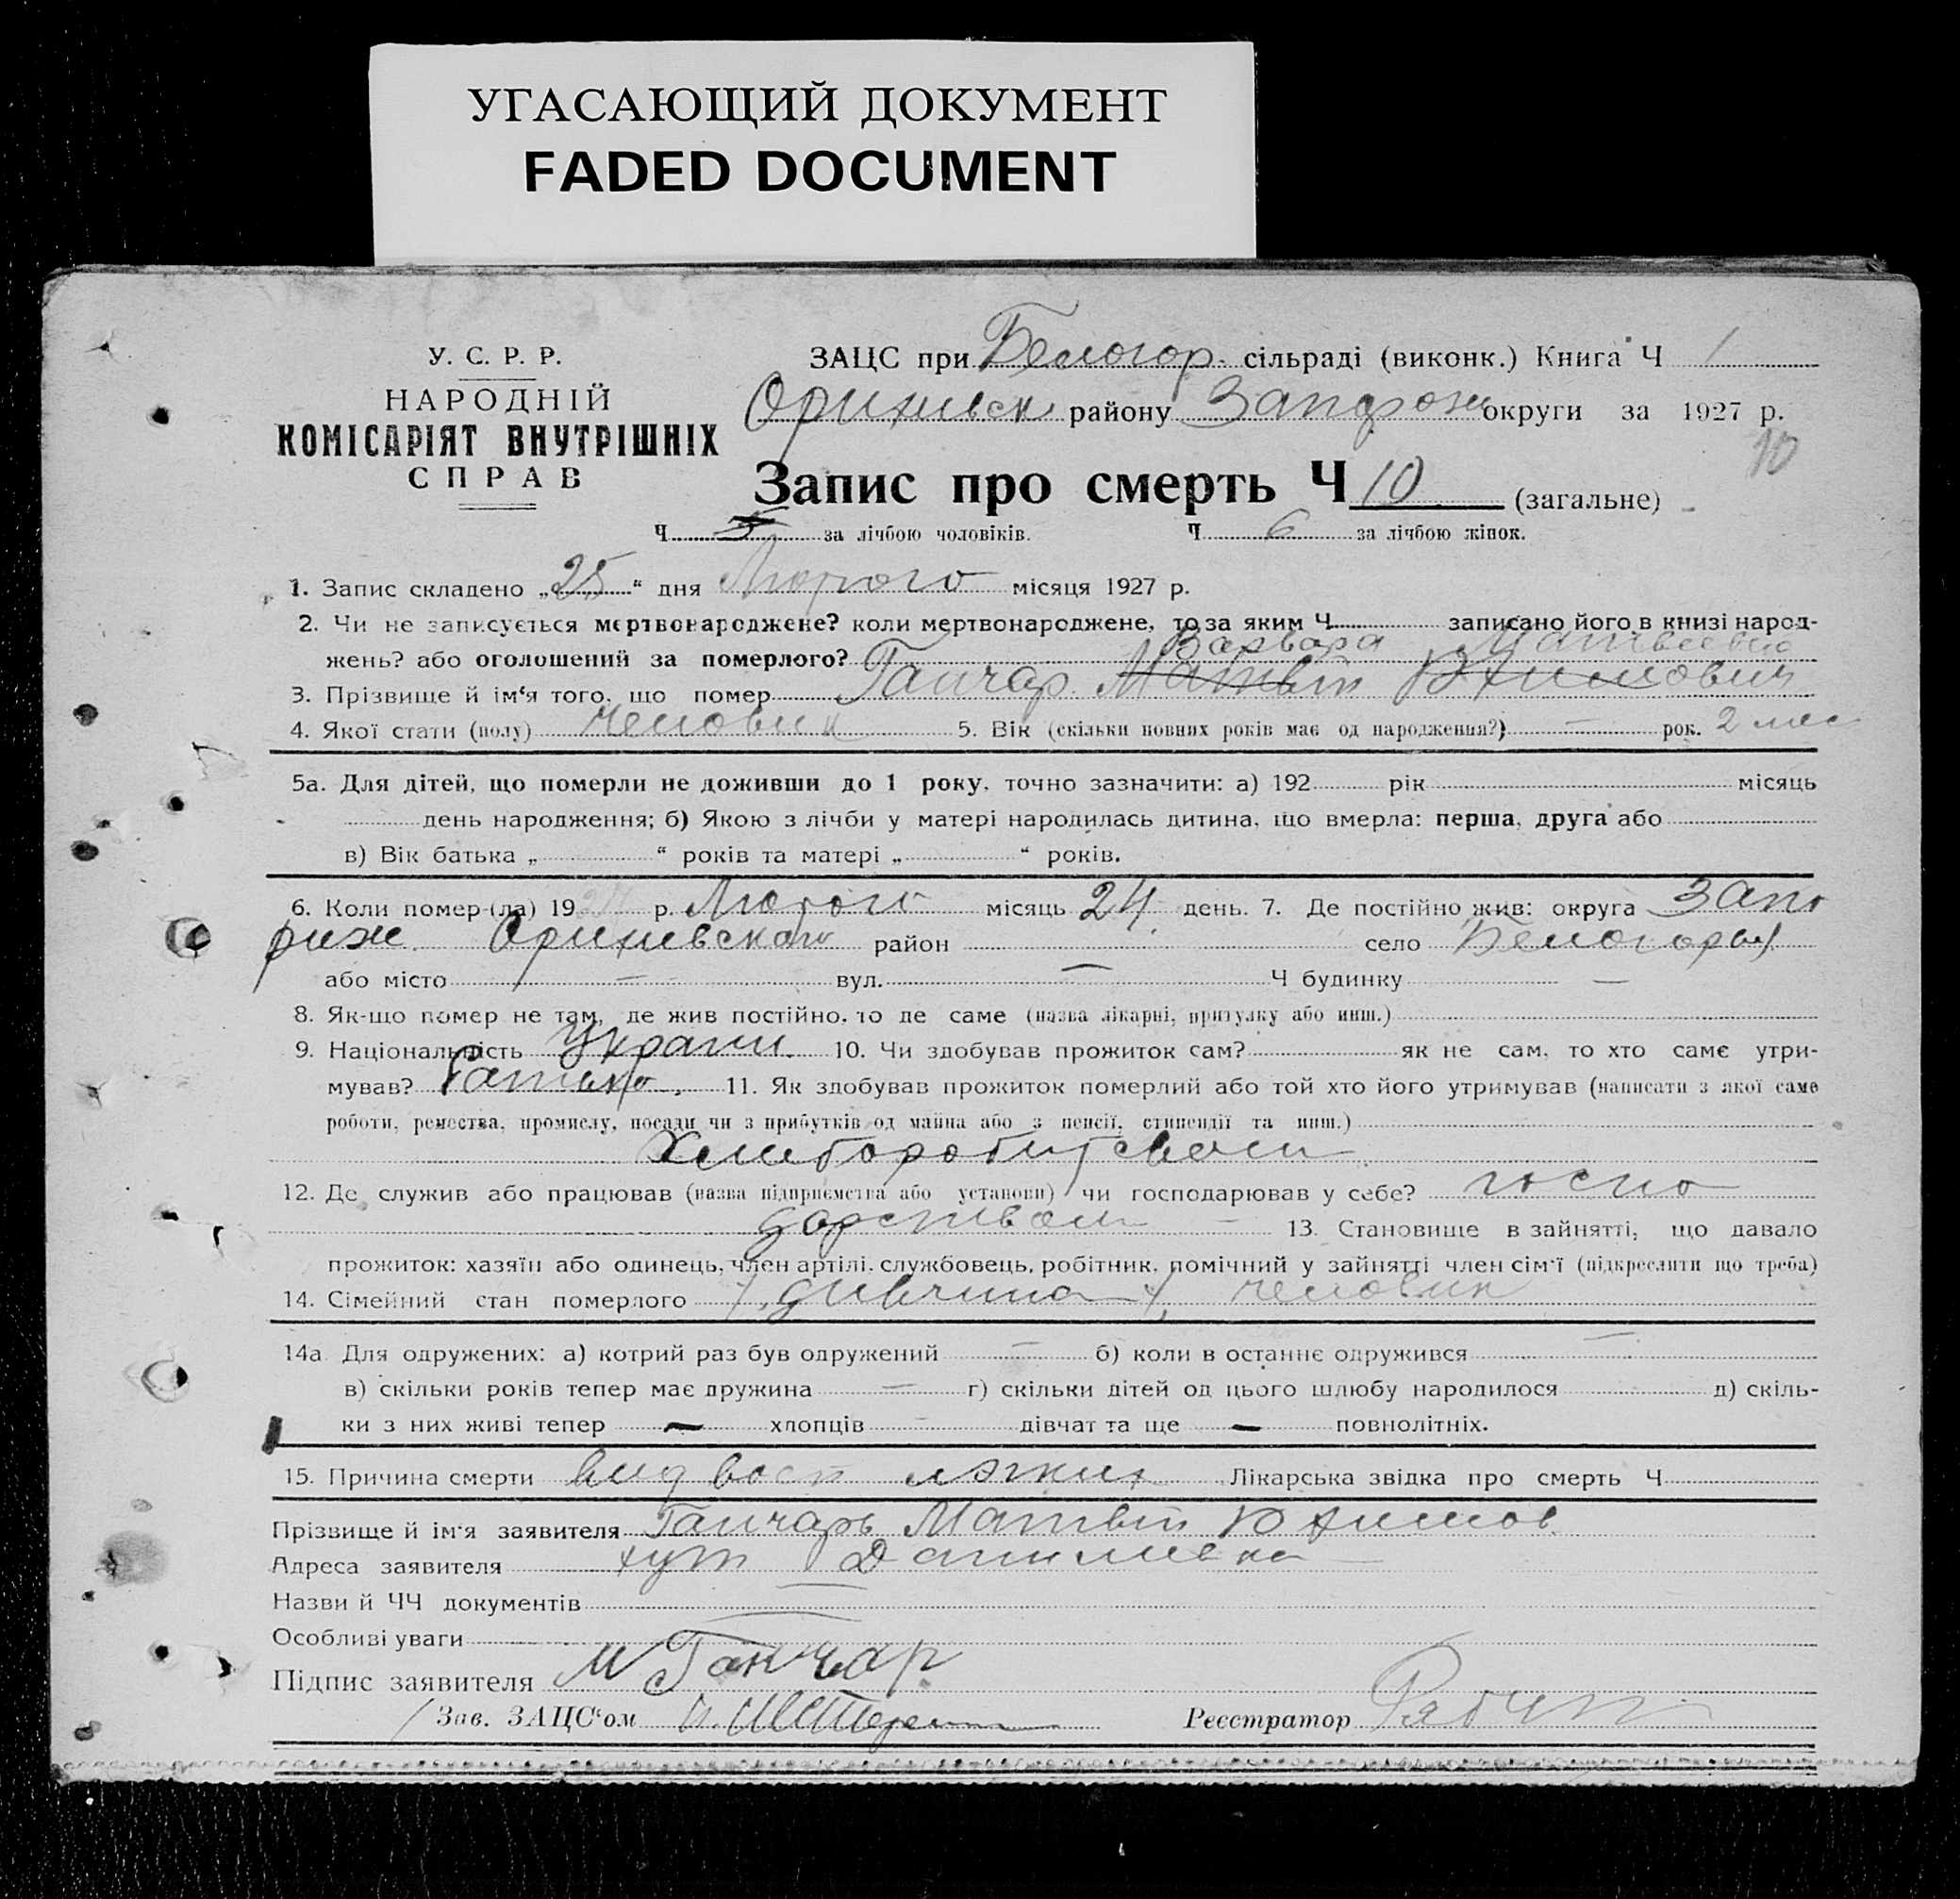 УГАСАЮЩИЙ ДОКУМЕНТ
FADED DOCUMENT
У. С. Р. Р.
НАРОДНІЙ
КОМІСАРІЯТ ВНУТРІШНІХ
СПРАВ
ЗАЦС при Белогор. сільраді (виконк.) Книга Ч 1
Орихивск району Запорож округи за 1927 р.
10
Запис про смерть Ч 10 (загальне)
Ч 5 за лічбою чоловіків. Ч 6 за лічбою жінок.
1. Запис складено „25“ дня Лютого місяця 1927 р.
2. Чи не записується мертвонароджене? коли мертвонароджене, то за яким Ч записано його в книзі народ-
Варвара Матвеевна
жень? або оголошений за померлого?
3. Прізвище й ім'я того, що помер Ганчар Матвій Юхимович
4. Якої стати (полу) человик 5. Вік (скільки повних років має од народження?) — рок. 2 мес
5а. Для дітей, що померли не доживши до 1 року, точно зазначити: а) 192 рік місяць
день народження; б) Якою з лічби у матері народилась дитина, що вмерла: перша, друга або
в) Вік батька „ “ років та матері „ “ років.
6. Коли помер-(ла) 19 р. Лютого місяць 24 день. 7. Де постійно жив: округа Запо
риж. Орихивского район село Белогорьи
або місто — вул. — Ч будинку —
8. Як-що помер не там, де жив постійно, то де саме (назва лікарні, притулку або инш.)
9. Національність Украги. 10. Чи здобував прожиток сам? як не сам, то хто саме утри-
мував? Батько. 11. Як здобував прожиток померлий або той хто його утримував (написати з якої саме
роботи, ремества, промислу, посади чи з прибутків од майна або з пенсії, стипендії та инш.)
Хлиборобитством
12. Де служив або працював (назва підприємства або установи) чи господарював у себе? госпо
дарством — 13. Становище в зайнятті, що давало
прожиток: хазяїн або одинець, член артілі, службовець, робітник, помічний у зайнятті член сім'ї (підкреслити що треба)
14. Сімейний стан померлого дивчина человик
14а Для одружених: а) котрий раз був одружений — б) коли в останнє одружився —
в) скільки років тепер має дружина — г) скільки дітей од цього шлюбу народилося д) скіль-
ки з них живі тепер — хлопців — дівчат та ще — повнолітніх.
15. Причина смерти вид восп легких Лікарська звідка про смерть Ч
Прізвище й ім'я заявителя Ганчарь Матвій Юхимов
Адреса заявителя хут Даниливка
Назви й ЧЧ документів
Особливі уваги
Підпис заявителя М Ганчар
Зав. ЗАЦС'ом
Реєстратор